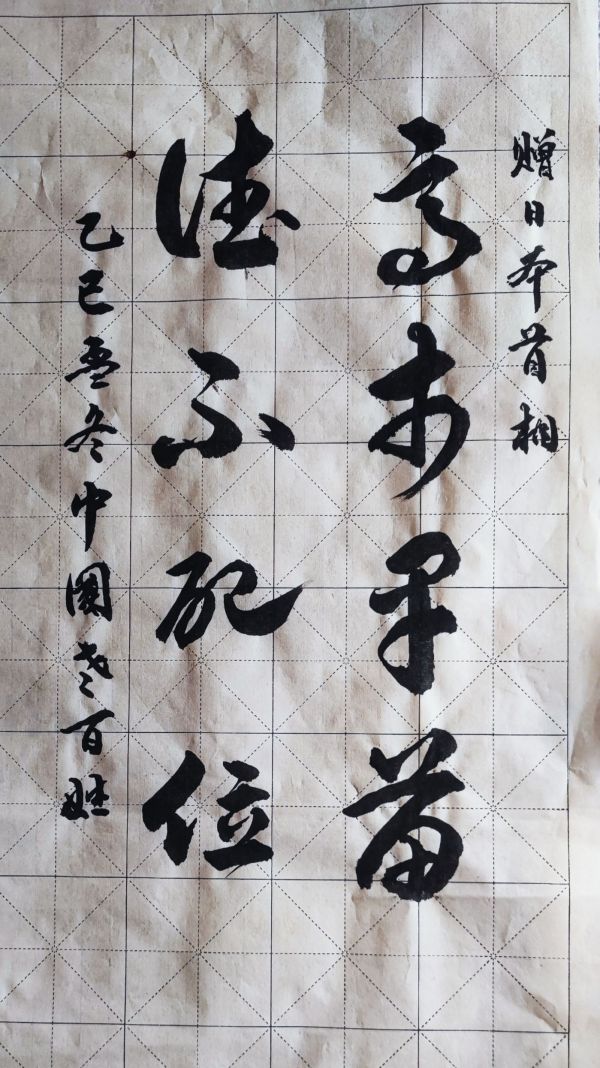 赠日本首相
高市早苗
德不配位
乙巳孟冬中國老百姓